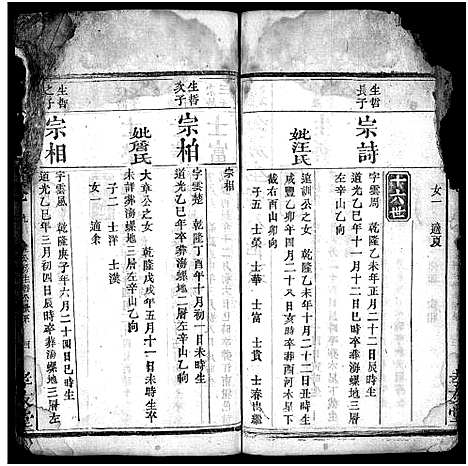 女一 適夏
十六世
生哲長子
宗詩
字雲周 乾隆乙未年正月二十二日未時生
道光乙巳年十一月二十四日辰時卒葬海螺地三層
左辛山乙向
妣汪氏
達訓公之女 乾隆乙未年十月二十二日丑時生
咸豐乙卯年四月二十八日亥時卒葬西河木星下
截右酉山卯向
子五 士榮 士華 士富 士貴 士春出繼
宗相
生哲次子
宗柏
字雲楚 乾隆丁酉年十月初一日未時生
道光乙巳年卒葬海螺地二層左辛山乙向
妣詹氏
大章公之女 乾隆戊戌年五月十一日未時生卒
未詳葬海螺地三層左辛山乙向
子二 士洋 士漢
女一 適余
生哲之子
宗相
字雲風 乾隆庚子年六月二十四日巳時生
道光乙巳年三月初四日辰時卒葬海螺地三層左